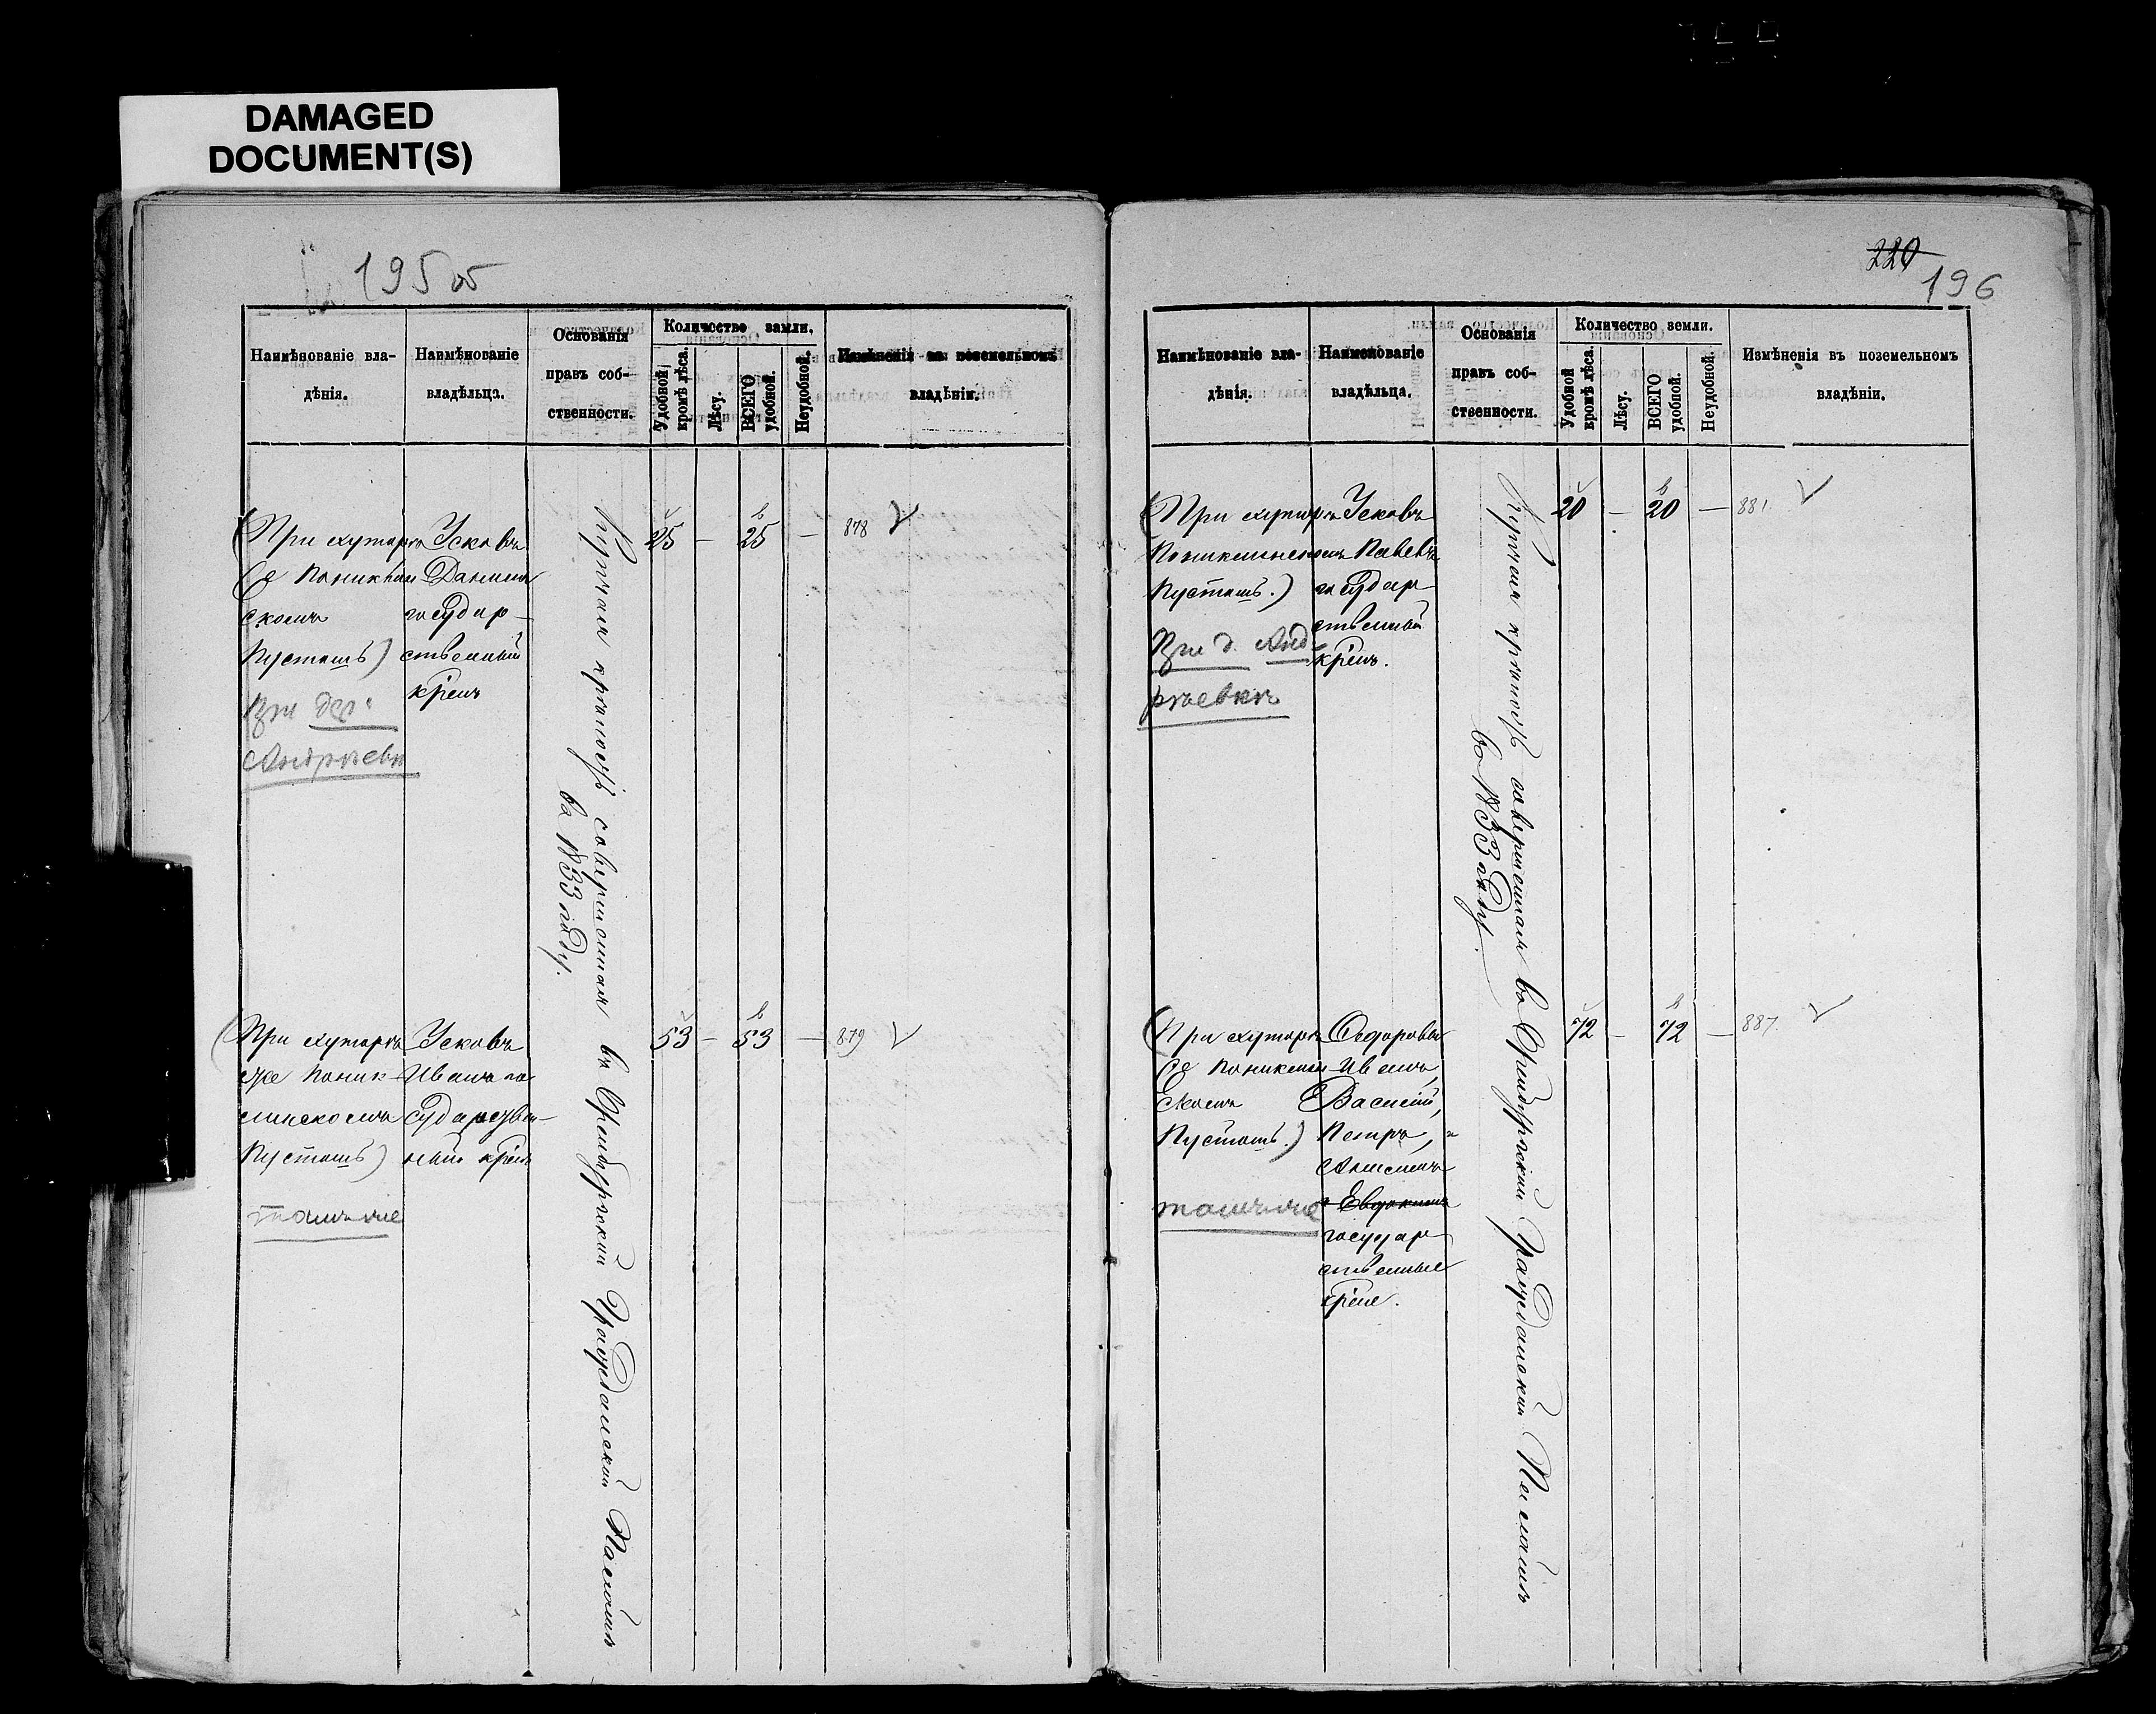 DAMAGED
DOCUMENT(S)
195 об
Наимѣнованіе вла-
дѣнія.
Наимѣнованіе
владѣльца.
Основанія
правъ соб-
ственности.
Количество земли.
Удобной
кромѣ лѣса.
Лѣсу.
ВСЕГО
удобной.
Неудобной.
Измѣненія въ поземельномъ
владѣніи.
(При хуторѣ
же
скомъ
Пустошь)
При дер.
Андреевк
Усковъ
Данила
государ-
ственный
крѣнъ
Купчая крѣпость совершенная въ Оренбургской Гражданской Палатѣ
въ 1833 году.
25 — 25 — 878
(При хуторѣ
же Поник-
линскомъ
Пустошь)
тамъ же
Усковъ
Иванъ го-
сударствен-
ный крѣнъ
53 — 53 — 879
220
196
Наимѣнованіе вла-
дѣнія.
Наименованіе
владѣльца.
Основанія
правъ соб-
ственности.
Количество земли.
Удобной
кромѣ лѣса.
Лѣсу.
ВСЕГО
удобной.
Неудобной.
Измѣненія въ поземельномъ
владѣніи.
(При хуторѣ
Пустошь.)
При д. Анд-
рѣевкѣ
Усковъ
Павелъ
государ-
ственный
крѣнъ.
Купчая крѣпость совершенная въ Оренбургской Гражданской Палатѣ
въ 1833 году.
20 — 20 — 881.
(При хуторѣ
же
скомъ
Пустошь.)
тамъ же
Федоровы
Иванъ,
Василій,
Петръ, и
Анисимъ
и Евдокимъ
государ-
ственные
крѣне.
72 — 72 — 887.